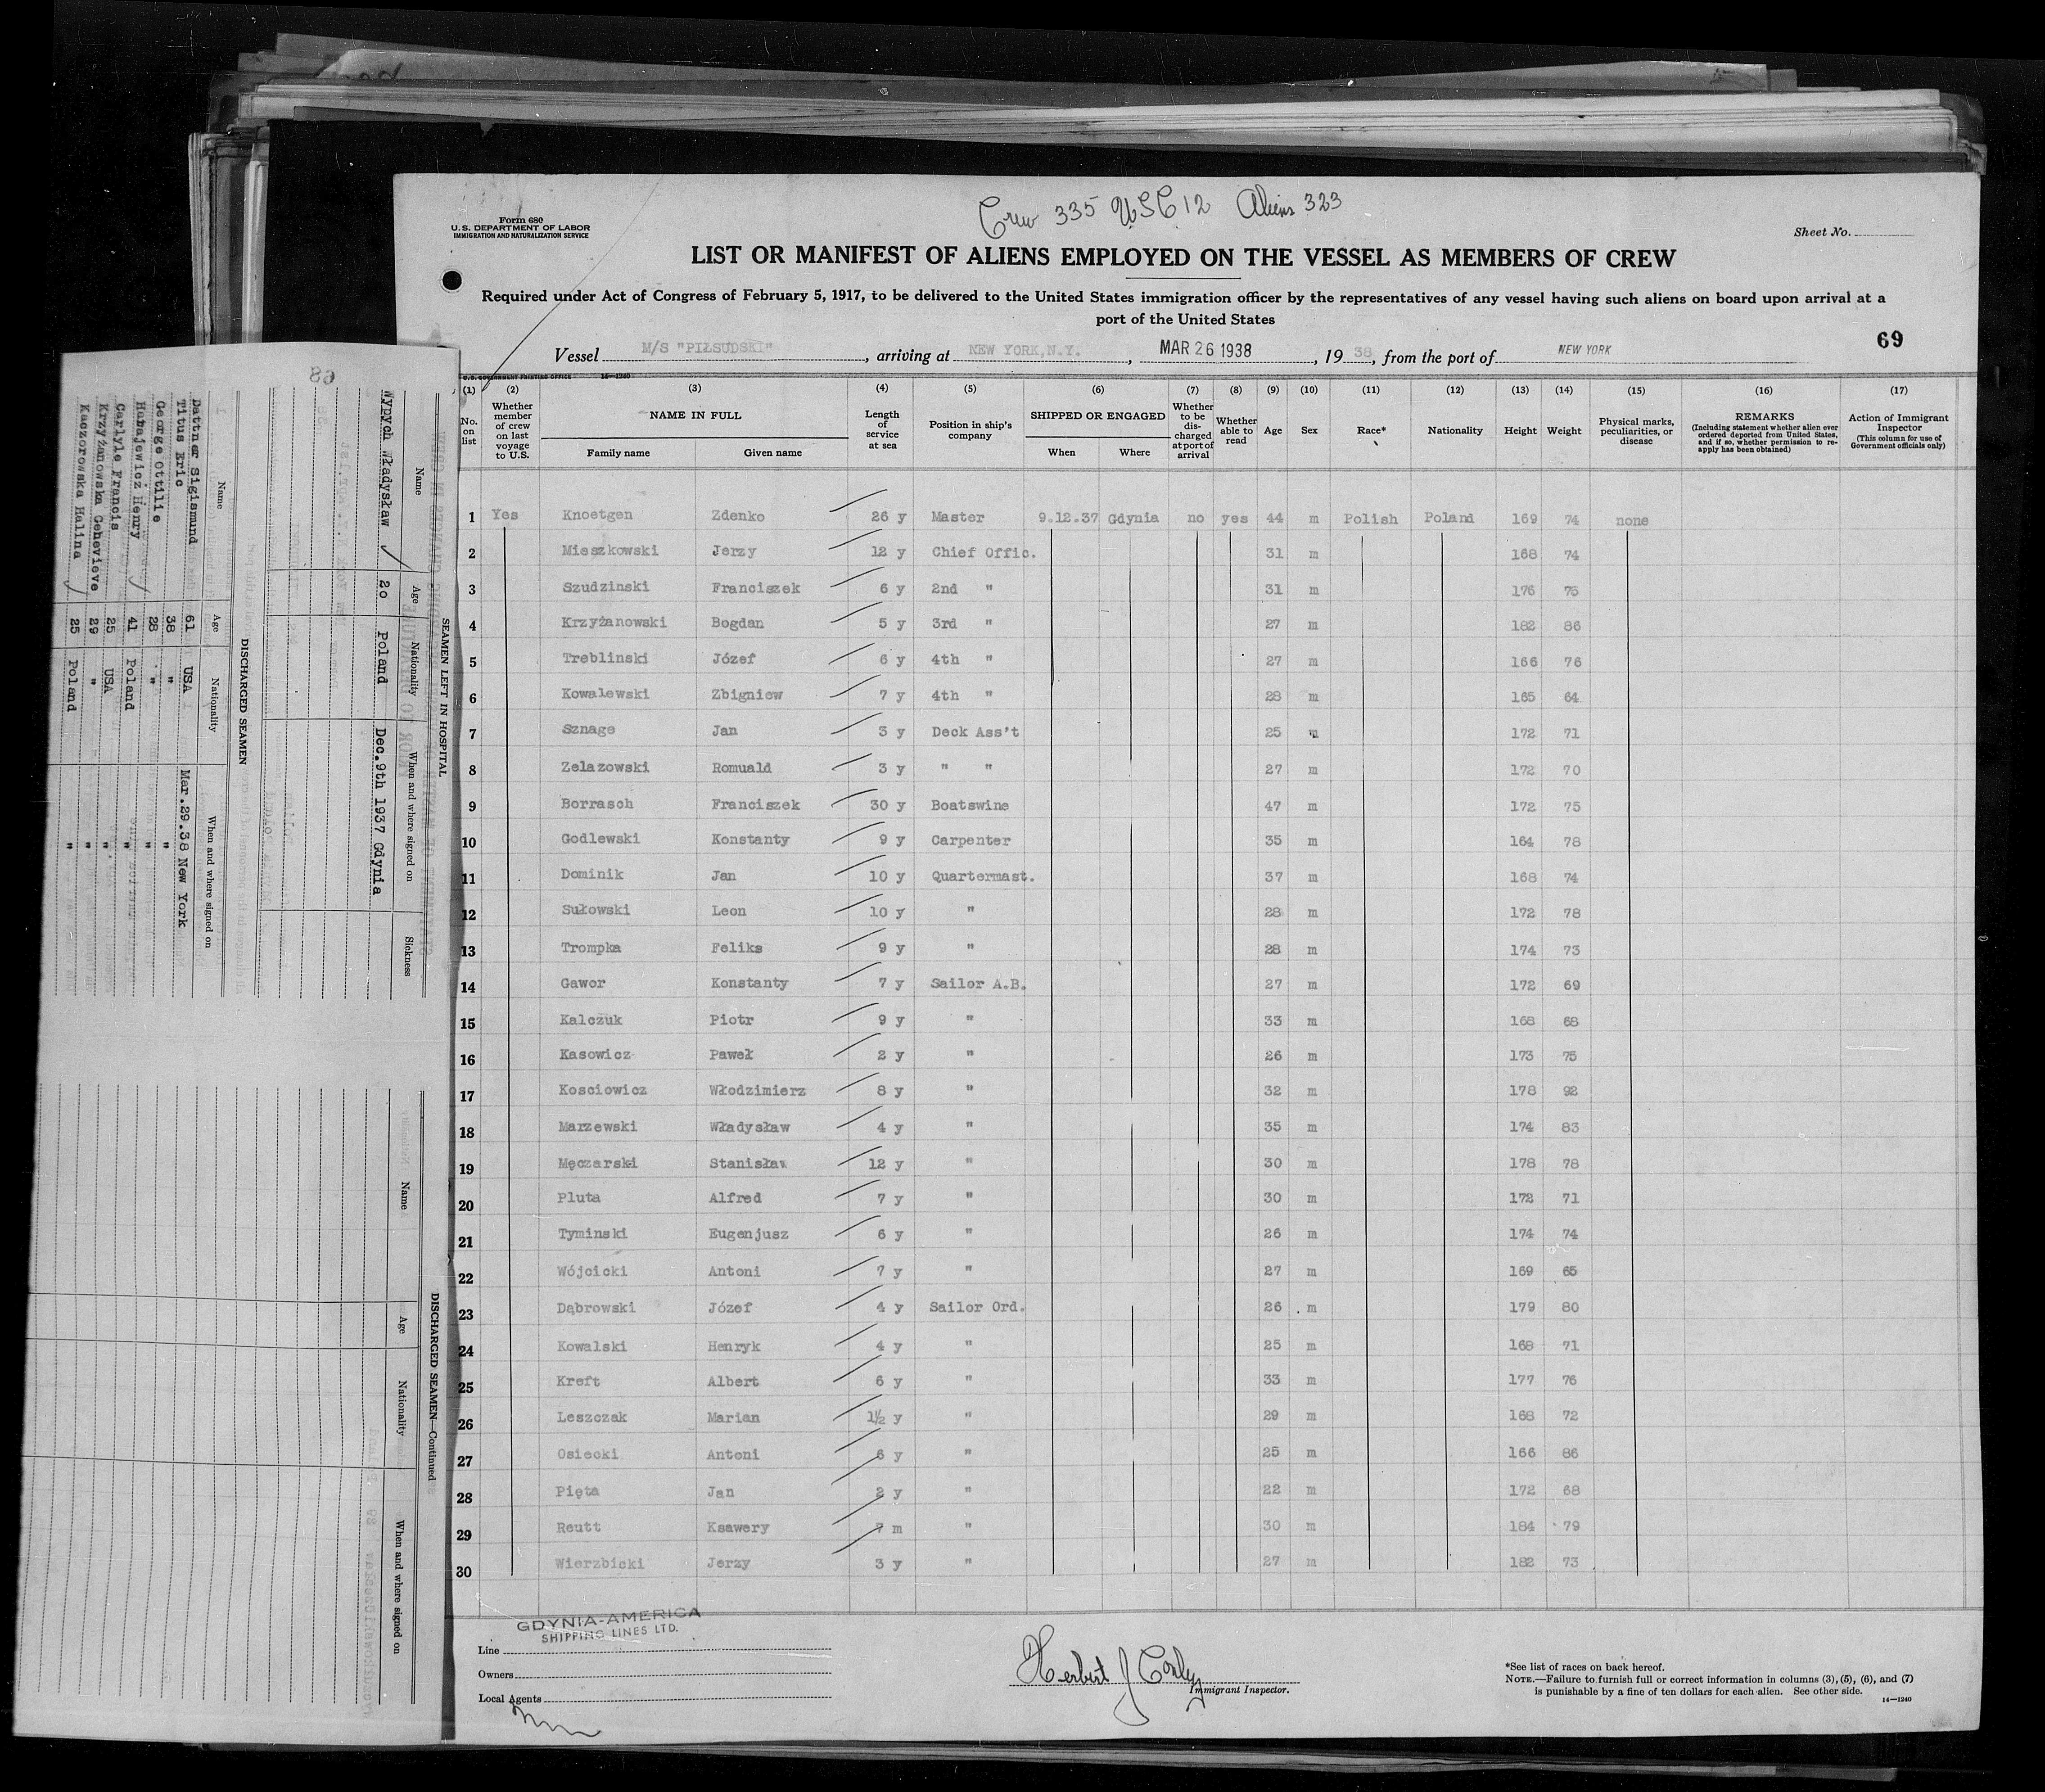 Crew 335 USC 12 Aliens 323
Form 680
U. S. DEPARTMENT OF LABOR
IMMIGRATION AND NATURALIZATION SERVICE
Sheet No.
LIST OR MANIFEST OF ALIENS EMPLOYED ON THE VESSEL AS MEMBERS OF CREW
Required under Act of Congress of February 5, 1917, to be delivered to the United States immigration officer by the representatives of any vessel having such aliens on board upon arrival at a
port of the United States
69
Vessel M/S "PIŁSUDSKI", arriving at NEW YORK,N.Y., MAR 26 1938, 1938, from the port of NEW YORK
U. S. GOVERNMENT PRINTING OFFICE 14—1240
(1) (2) (3) (4) (5) (6) (7) (8) (9) (10) (11) (12) (13) (14) (15) (16) (17)
No. on list
Whether member of crew on last voyage to U.S.
NAME IN FULL
Family name Given name
Length of service at sea
Position in ship's company
SHIPPED OR ENGAGED
When Where
Whether to be discharged at port of arrival
Whether able to read
Age
Sex
Race*
Nationality
Height
Weight
Physical marks, peculiarities, or disease
REMARKS
(Including statement whether alien ever ordered deported from United States, and if so, whether permission to reapply has been obtained)
Action of Immigrant Inspector
(This column for use of Government officials only)
1 Yes Knoetgen Zdenko 26 y Master 9.12.37 Gdynia no yes 44 m Polish Poland 169 74 none
2 Mieszkowski Jerzy 12 y Chief Offic. 31 m 168 74
3 Szudzinski Franciszek 6 y 2nd " 31 m 176 75
4 Krzyżanowski Bogdan 5 y 3rd " 27 m 182 86
5 Treblinski Józef 6 y 4th " 27 m 166 76
6 Kowalewski Zbigniew 7 y 4th " 28 m 165 64
7 Sznage Jan 3 y Deck Ass't 25 m 172 71
8 Zelazowski Romuald 3 y " " 27 m 172 70
9 Borrasch Franciszek 30 y Boatswine 47 m 172 75
10 Godlewski Konstanty 9 y Carpenter 35 m 164 78
11 Dominik Jan 10 y Quartermast. 37 m 168 74
12 Sułowski Leon 10 y " 28 m 172 78
13 Trompka Feliks 9 y " 28 m 174 73
14 Gawor Konstanty 7 y Sailor A.B. 27 m 172 69
15 Kalczuk Piotr 9 y " 33 m 168 68
16 Kasowicz Paweł 2 y " 26 m 173 75
17 Kosciowicz Włodzimierz 8 y " 32 m 178 92
18 Marzewski Władysław 4 y " 35 m 174 83
19 Męczarski Stanisław 12 y " 30 m 178 78
20 Pluta Alfred 7 y " 30 m 172 71
21 Tyminski Eugenjusz 6 y " 26 m 174 74
22 Wójcicki Antoni 7 y " 27 m 169 65
23 Dąbrowski Józef 4 y Sailor Ord. 26 m 179 80
24 Kowalski Henryk 4 y " 25 m 168 71
25 Kreft Albert 6 y " 33 m 177 76
26 Leszczak Marian 1½ y " 29 m 168 72
27 Osiecki Antoni 6 y " 25 m 166 86
28 Pięta Jan 2 y " 22 m 172 68
29 Reutt Ksawery 7 m " 30 m 184 79
30 Wierzbicki Jerzy 3 y " 27 m 182 73
GDYNIA-AMERICA
SHIPPING LINES LTD.
Line
Owners
Local Agents
Herbert J Conly
Immigrant Inspector.
*See list of races on back hereof.
NOTE.—Failure to furnish full or correct information in columns (3), (5), (6), and (7)
is punishable by a fine of ten dollars for each alien. See other side.
14—1240
SEAMEN LEFT IN HOSPITAL
Name Age Nationality When and where signed on Sickness
Wypych Władysław 20 Poland Dec.9th 1937 Gdynia
DISCHARGED SEAMEN
Name Age Nationality When and where signed on
Dattner Sigismund 61 USA Mar.29.38 New York
Titus Eric 38 " "
George Ottilie 28 " "
Habajewicz Henry 41 Poland "
Carlyle Francis 25 USA "
Krzyżanowska Genevieve 29 " "
Kaczorowska Halina 25 Poland "
DISCHARGED SEAMEN—Continued
Name Age Nationality When and where signed on